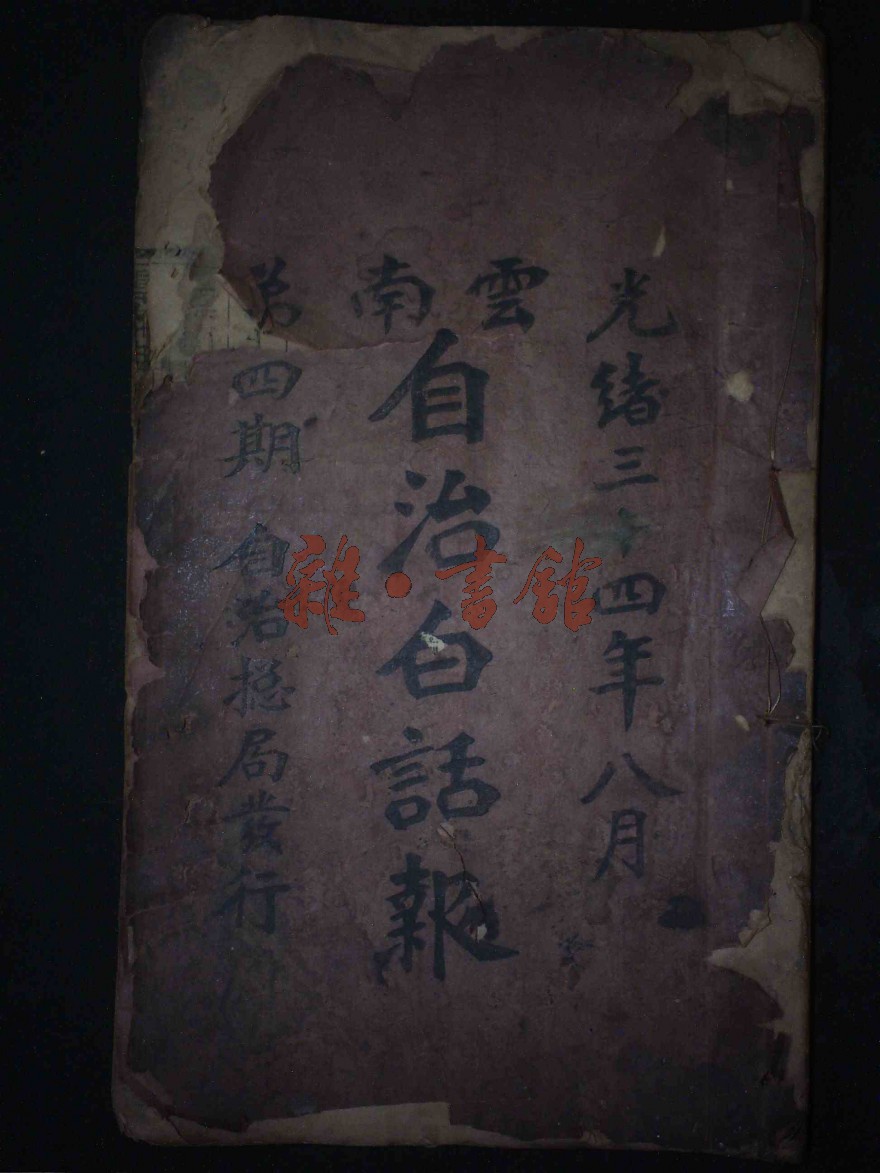 光緒三十四年八月
雲南
自治白話報
第四期 自治総局發行
雜·書館